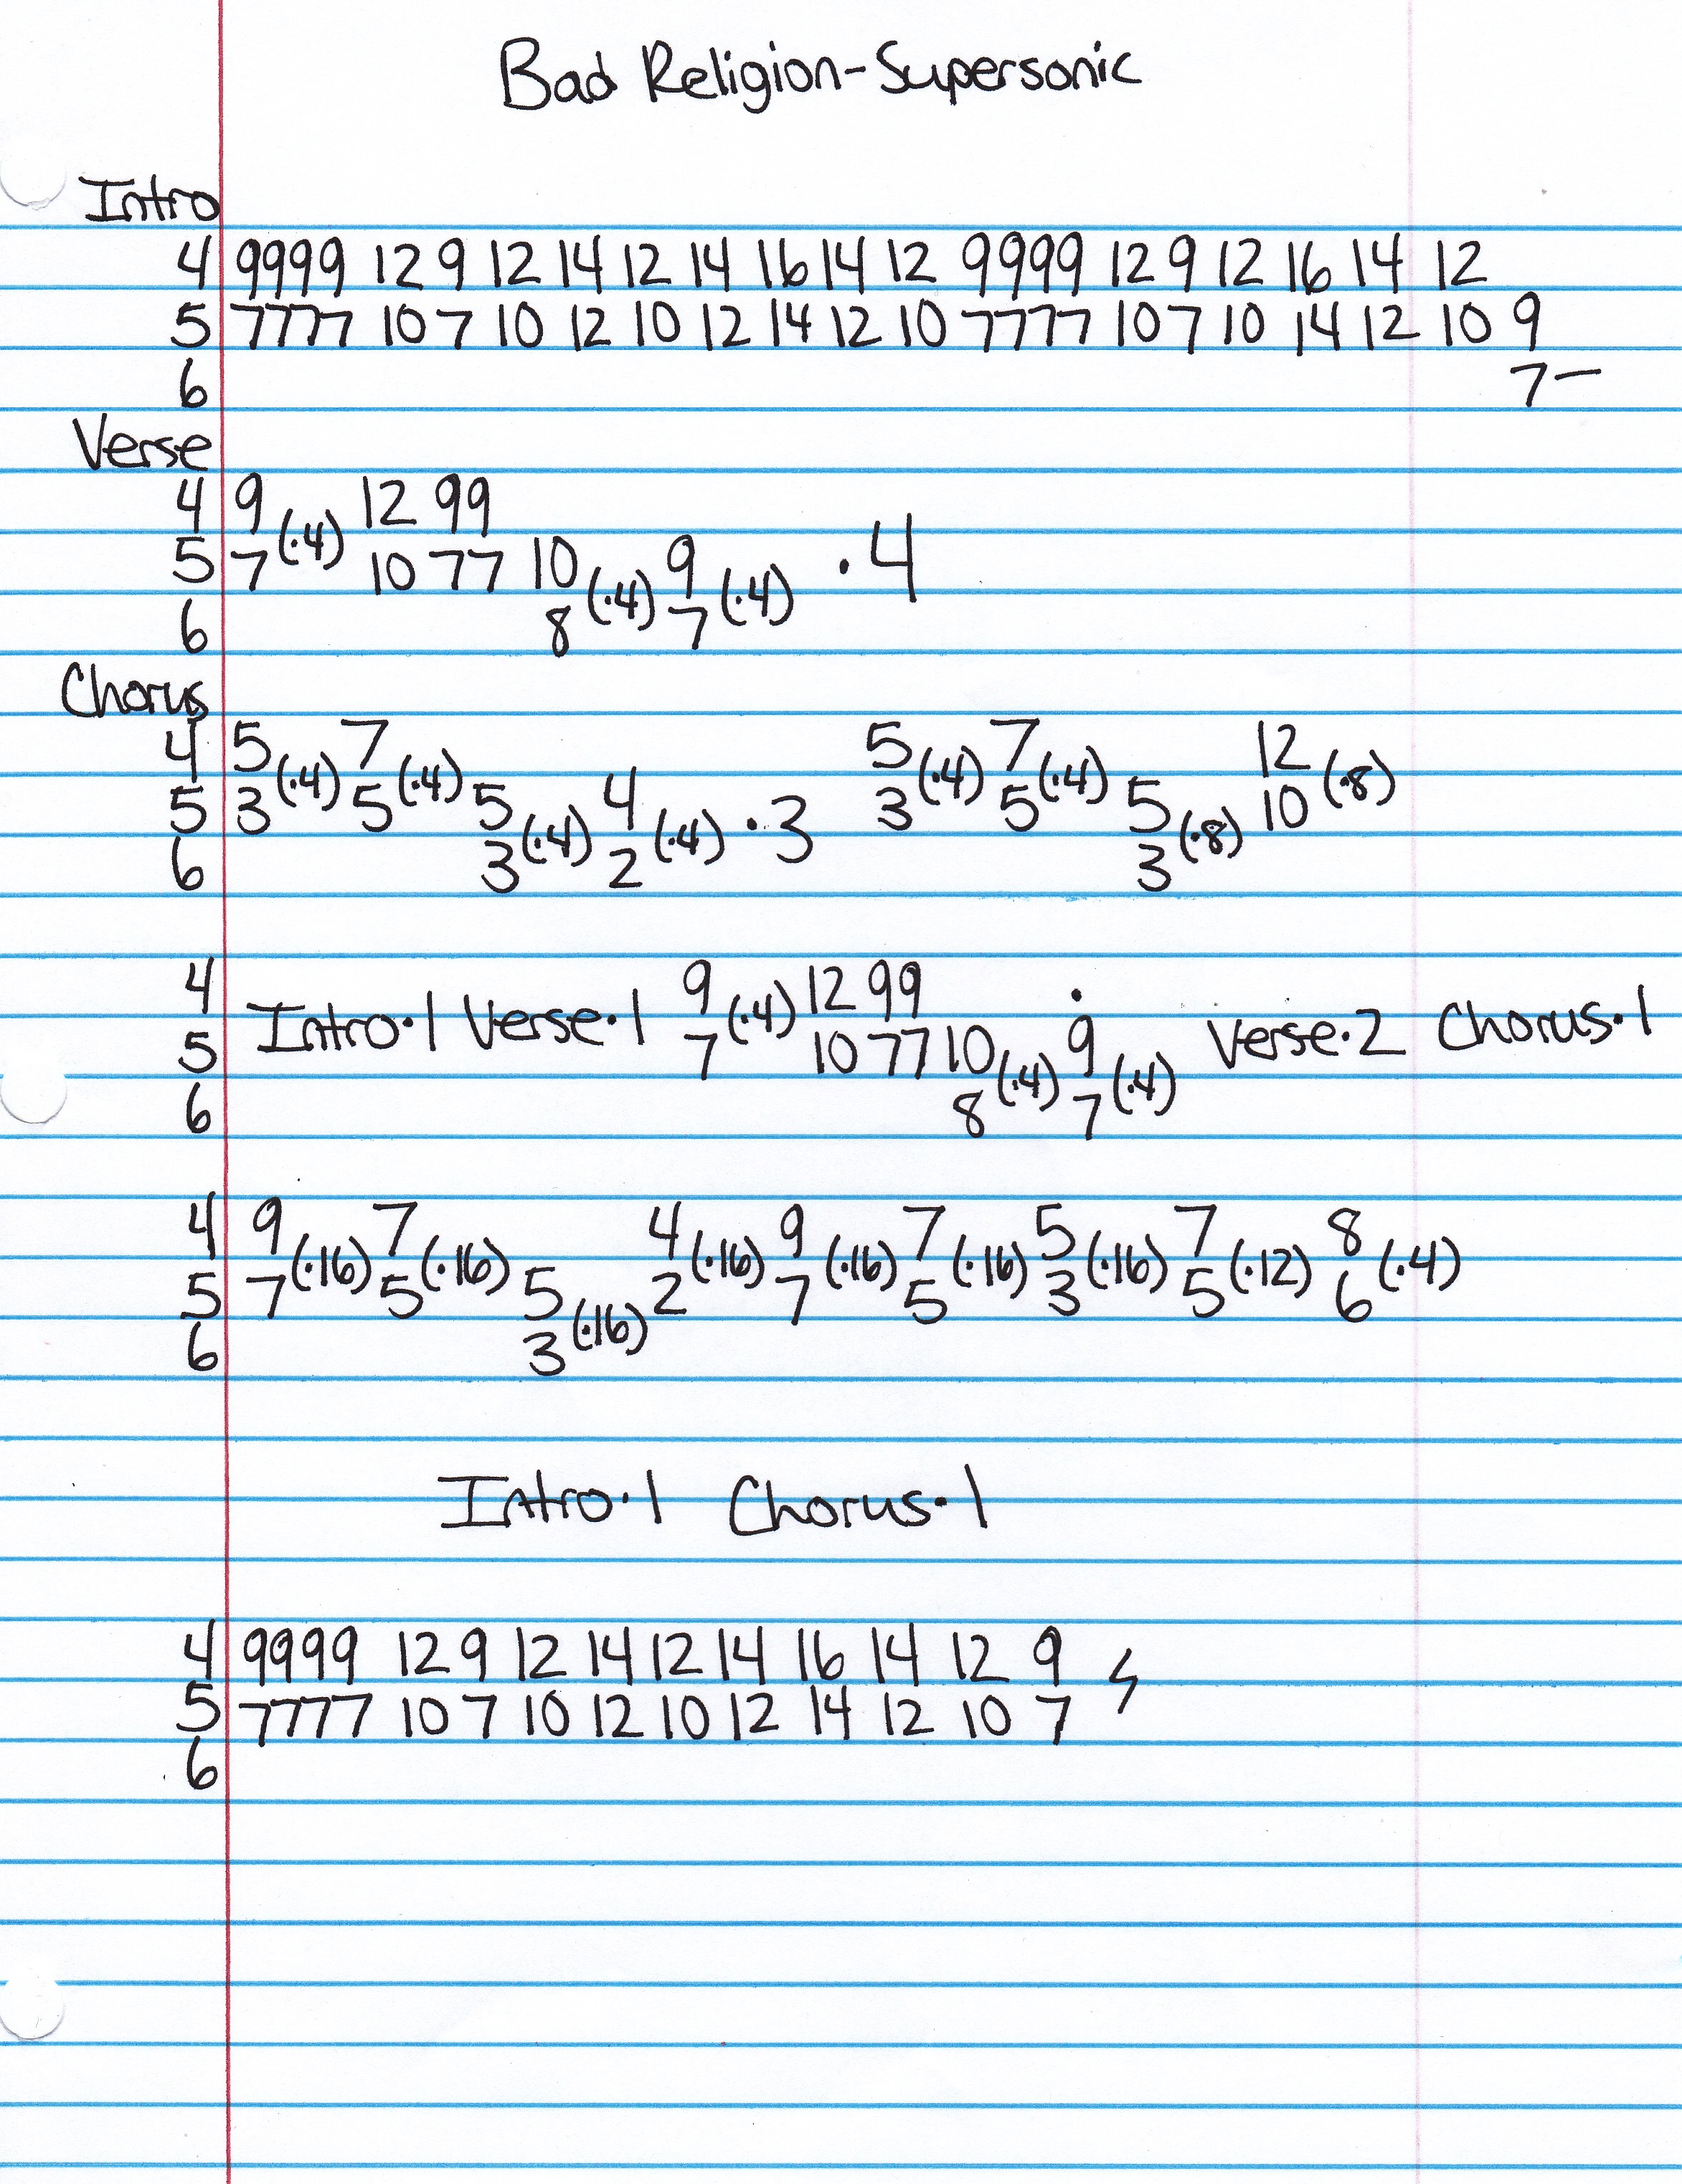 Bad Religion-Supersonic
Intro
4 9999 12 9 12 14 12 14 16 14 12 9999 12 9 12 16 14 12
5 7777 10 7 10 12 10 12 14 12 10 7777 10 7 10 14 12 10 9
6 7—
Verse
4 9 (·4) 12 99
5 7 10 77 10 (·4) 9 (·4) ·4
6 8 7
Chorus
4 5 (·4) 7 (·4) 5 (·4) 7 (·4) 12 (·8)
5 3 5 5 (·4) 4 (·4) ·3 3 5 5 (·8) 10
6 3 2 3
4 9 (·4) 12 99
Intro·1 Verse·1 Verse·2 Chorus·1
5 7 10 77 10 (·4) 9 (·4)
6 8 7
4 9 (·16) 7 (·16) 4 (·16) 9 (·16) 7 (·16) 5 (·16) 7 (·12) 8 (·4)
5 7 5 5 (·16) 2 7 5 3 5 6
6 3
Intro·1 Chorus·1
4 9999 12 9 12 14 12 14 16 14 12 9
5 7777 10 7 10 12 10 12 14 12 10 7
6